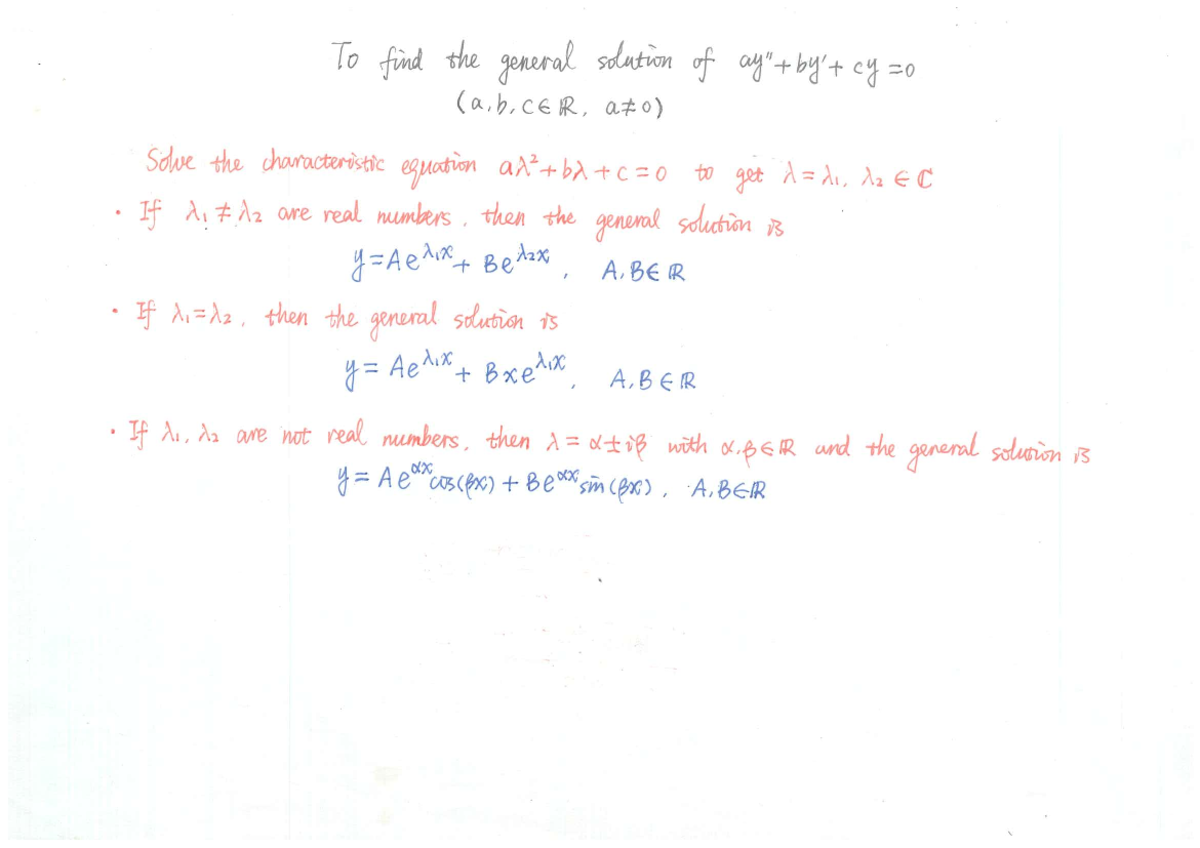 To find the general solution of ay″+by′+cy=0
(a,b,c∈ℝ, a≠0)
Solve the characteristic equation aλ²+bλ+c=0 to get λ=λ₁, λ₂∈ℂ
· If λ₁≠λ₂ are real numbers, then the general solution is
y=Ae^{λ₁x}+Be^{λ₂x}, A,B∈ℝ
· If λ₁=λ₂, then the general solution is
y=Ae^{λ₁x}+Bxe^{λ₁x}, A,B∈ℝ
· If λ₁,λ₂ are not real numbers, then λ=α±iβ with α,β∈ℝ and the general solution is
y=Ae^{αx}cos(βx)+Be^{αx}sin(βx), A,B∈ℝ